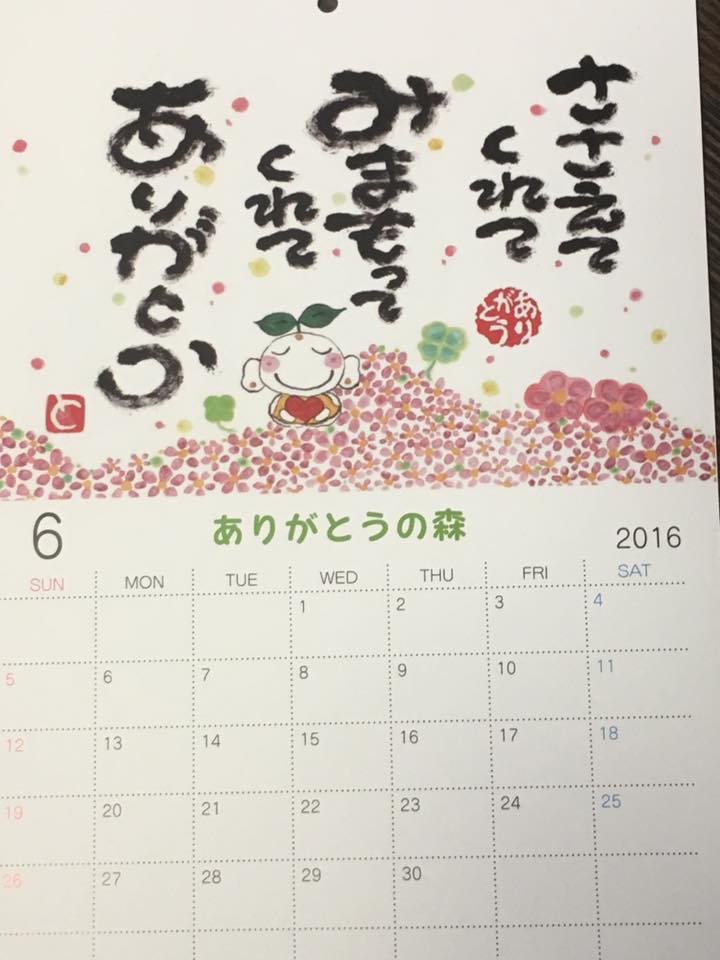 ささえて
くれて
みまもって
くれて
ありがとう
ありがとう
と
6
ありがとうの森
2016
SUN MON TUE WED THU FRI SAT
1 2 3 4
5 6 7 8 9 10 11
12 13 14 15 16 17 18
19 20 21 22 23 24 25
26 27 28 29 30